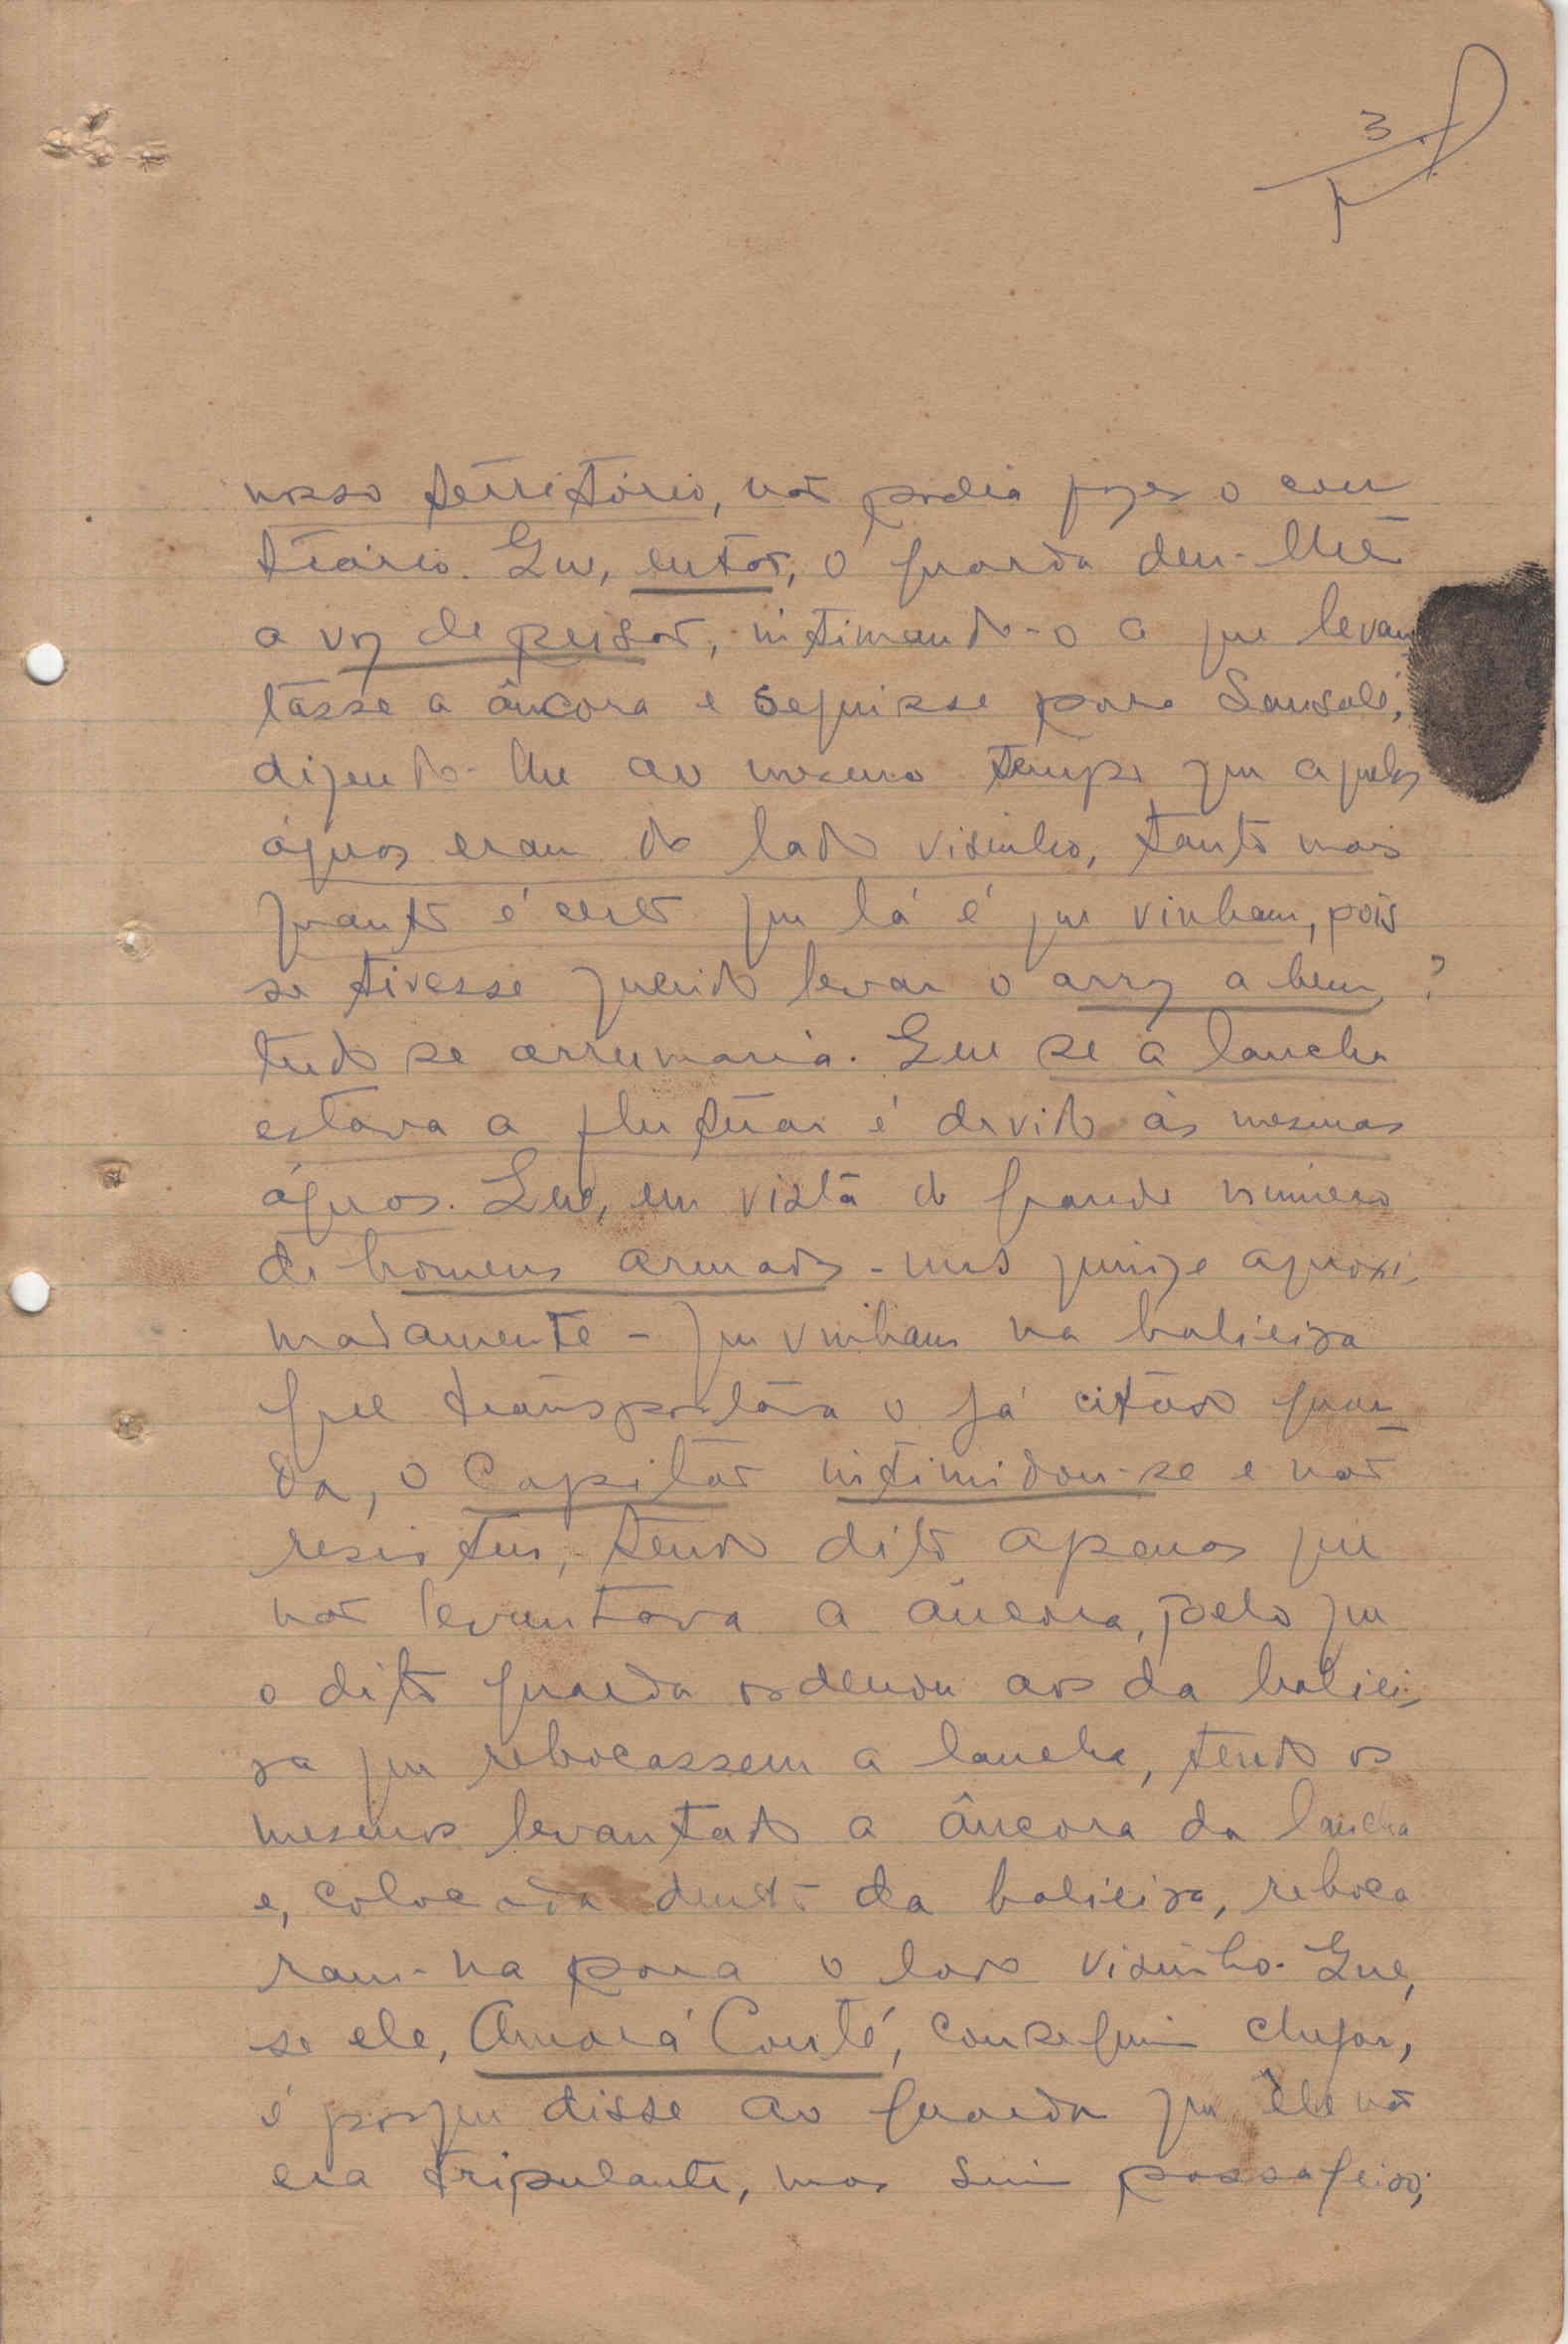 3
nosso território, não podia fazer o con
trário. Que, então, o guarda deu-lhe
a voz de prisão, intimando-o a que levan
tasse a âncora e seguisse para Sansalé,
dizendo-lhe ao mesmo tempo que aquelas
águas eram do lado visinho, tanto mais
quanto é certo que lá é que vinham, pois
se tivesse querido levar o arroz a bem, ?
tudo se arrumaria. Que se a lancha
estava a flutuar é devido às mesmas
águas. Que, em vista do grande número
de homens armados - uns quinze aproxi-
madamente - que vinham na baleeira
que transportára o já citado guar
da, o Capitão intimidou-se e não
resistiu, tendo dito apenas que
não levantava a âncora, pelo que
o dito guarda ordenou aos da baleei-
ra que rebocassem a lancha, tendo os
mesmos levantado a âncora da lancha
e, colocada dentro da baleeira, reboca
ram-na para o lado visinho. Que,
se ele, Amará Conté, conseguiu chegar,
é porque disse ao guarda que êle não
era tripulante, mas sim passageiro;